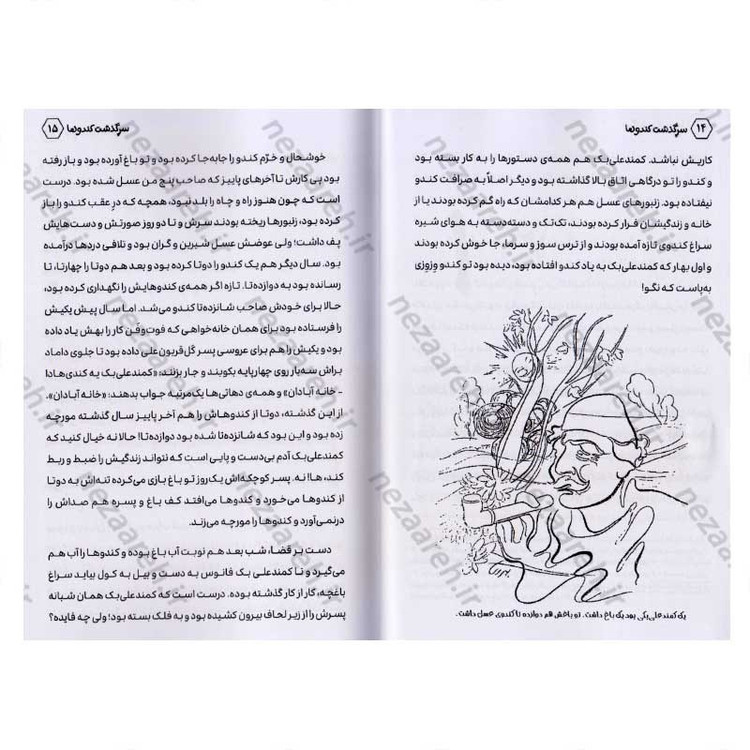 ۱۴ سرگذشت کندوها
کاریش نباشد. کمندعلی‌بک هم همه‌ی دستورها را به کار بسته بود
و کندو را تو درگاهی اتاق بالا گذاشته بود و دیگر اصلاً به صرافت کندو
نیفتاده بود. زنبورهای عسل هم هر کدامشان که راه گم کرده بودند یا از
خانه و زندگیشان فرار کرده بودند، تک‌تک و دسته‌دسته به هوای شیره
سراغ کندوی تازه آمده بودند و از ترس سوز و سرما، جا خوش کرده بودند
و اول بهار که کمندعلی‌بک به یاد کندو افتاده بود، دیده بود تو کندو وزوزی
به‌پاست که نگو!
یک کمندعلی‌بکی بود یک باغ داشت. تو باغش هم دوازده تا کندوی عسل داشت.
سرگذشت کندوها ۱۵
خوشحال و خرّم کندو را جابه‌جا کرده بود و تو باغ آورده بود و باز رفته
بود پی کارش تا آخرهای پاییز که صاحب پنج من عسل شده بود. درست
است که چون هنوز راه و چاه را بلد نبود، همچه که درِ عقب کندو را باز
کرده بود، زنبورها ریخته بودند سرش و تا دو روز صورتش و دست‌هایش
پف داشت؛ ولی عوضش عسل شیرین و گران بود و تلافی دردها درآمده
بود. سال دیگر هم یک کندو را دوتا کرده بود و بعد هم دوتا را چهارتا، تا
رسانده بود به دوازده‌تا. تازه اگر همه‌ی کندوهایش را نگهداری کرده بود،
حالا برای خودش صاحب شانزده‌تا کندو می‌شد. اما سال پیش یکیش
را فرستاده بود برای همان خانه‌خواهی که فوت‌وفن کار را بهش یاد داده
بود و یکیش را هم برای عروسی پسر گل‌قربون‌علی داده بود تا جلوی داماد
براش سه‌بار روی چهارپایه بکوبند و جار بزنند: «کمندعلی‌بک یه کندی‌هادا
- خانه آبادان» و همه‌ی دهاتی‌ها یک‌مرتبه جواب بدهند: «خانه آبادان».
از این گذشته، دوتا از کندوهاش را هم آخر پاییز سال گذشته مورچه
زده بود و این بود که شانزده‌تا شده بود دوازده‌تا! حالا نه خیال کنید که
کمندعلی‌بک آدم بی‌دست و پایی است که نتواند زندگیش را ضبط و ربط
کند، ها! نه. پسر کوچکه‌اش یک‌روز تو باغ بازی می‌کرده تنه‌اش به دوتا
از کندوها می‌خورد و کندوها می‌افتد کف باغ و پسره هم صداش را
درنمی‌آورد و کندوها را مورچه می‌زند.
دست بر قضا، شب بعد هم نوبت آب باغ بوده و کندوها را آب هم
می‌گیرد و تا کمندعلی بک فانوس به دست و بیل به کول بیاید سراغ
باغچه، کار از کار گذشته بوده. درست است که کمندعلی‌بک همان شبانه
پسرش را از زیر لحاف بیرون کشیده بود و به فلک بسته بود؛ ولی چه فایده؟
nezaareh.ir
nezaareh.ir
nezaareh.ir
nezaareh.ir
nezaareh.ir
nezaareh.ir